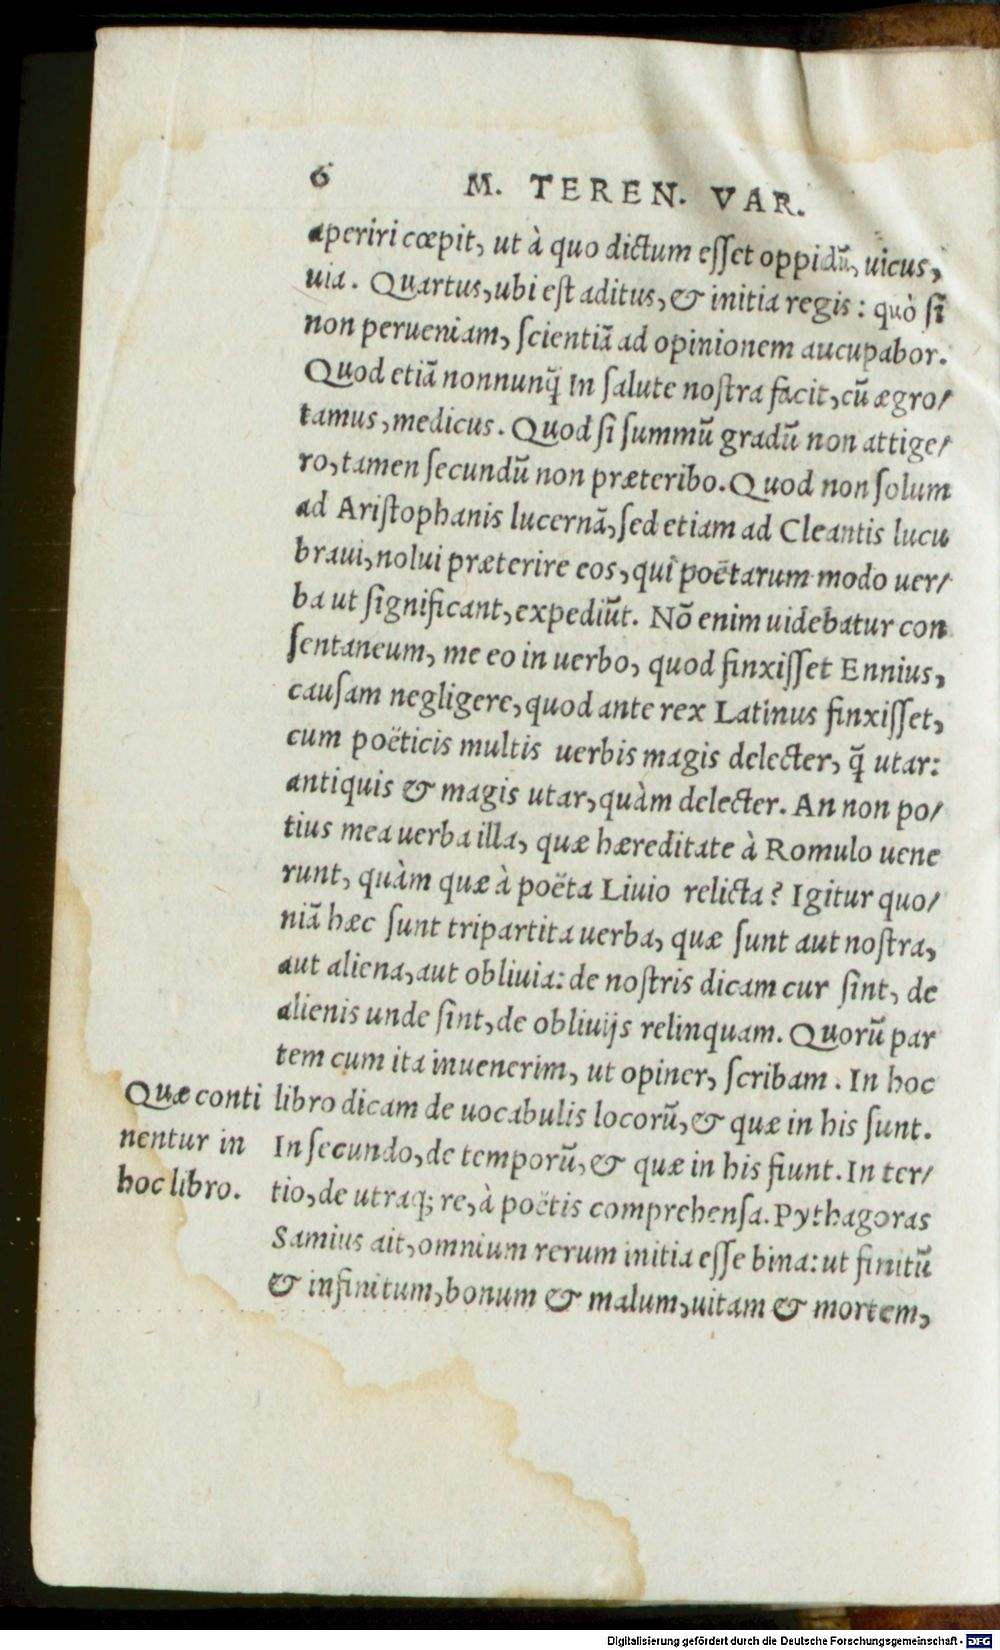 6 M. TEREN. VAR.
aperiri cœpit, ut à quo dictum esset oppidũ, uicus,
uia. Quartus, ubi est aditus, & initia regis: quò si
non perueniam, scientiã ad opinionem aucupabor.
Quod etiã nonnunq̃ in salute nostra facit, cũ ægro/
tamus, medicus. Quod si summũ gradũ non attige/
ro, tamen secundũ non præteribo. Quod non solum
ad Aristophanis lucernã, sed etiam ad Cleantis lucu
braui, nolui præterire eos, qui poëtarum modo uer/
ba ut significant, expediũt. Nõ enim uidebatur con
sentaneum, me eo in uerbo, quod finxisset Ennius,
causam negligere, quod ante rex Latinus finxisset,
cum poëticis multis uerbis magis delecter, q̃ utar:
antiquis & magis utar, quàm delecter. An non po/
tius mea uerba illa, quæ hæreditate à Romulo uene
runt, quàm quæ à poëta Liuio relicta? Igitur quo/
niã hæc sunt tripartita uerba, quæ sunt aut nostra,
aut aliena, aut obliuia: de nostris dicam cur sint, de
alienis unde sint, de obliuijs relinquam. Quorũ par
tem cum ita inuenerim, ut opiner, scribam. In hoc
libro dicam de uocabulis locorũ, & quæ in his sunt.
In secundo, de temporũ, & quæ in his fiunt. In ter/
tio, de utraq; re, à poëtis comprehensa. Pythagoras
Samius ait, omnium rerum initia esse bina: ut finitũ
& infinitum, bonum & malum, uitam & mortem,
Quæ conti
nentur in
hoc libro.
Digitalisierung gefördert durch die Deutsche Forschungsgemeinschaft - DFG